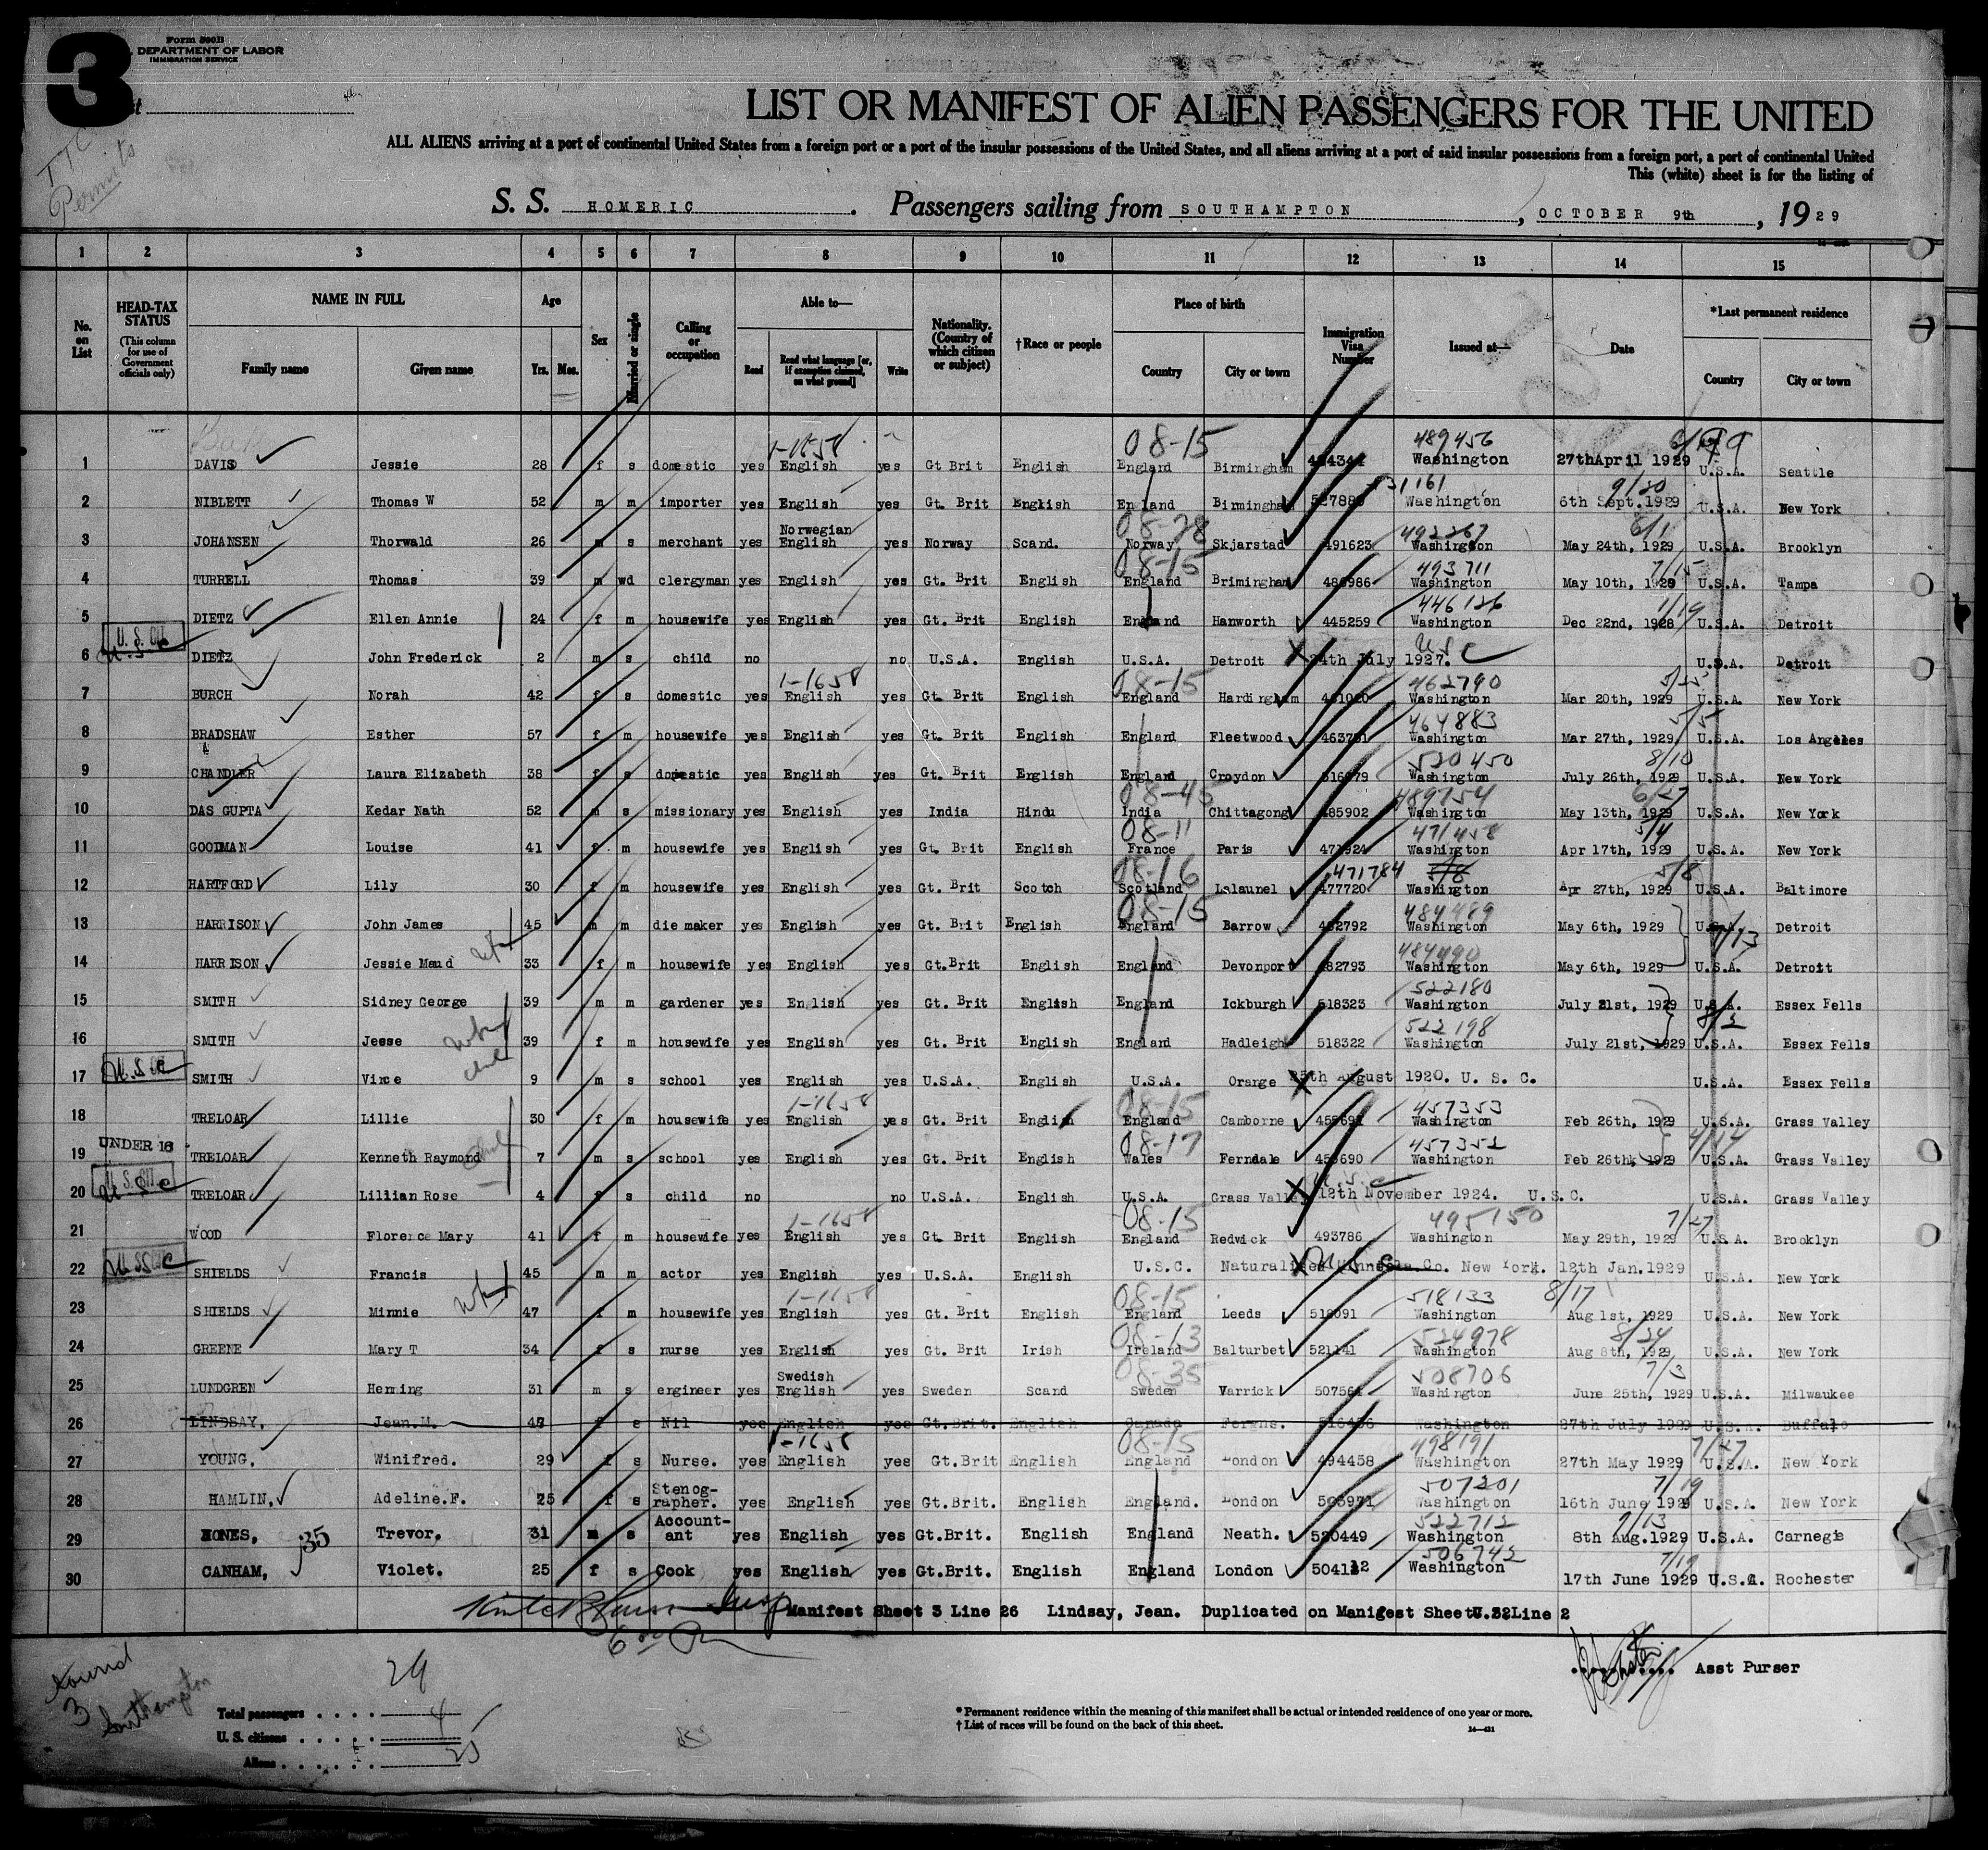 3
Form 500B
DEPARTMENT OF LABOR
IMMIGRATION SERVICE
TTC
Permits
LIST OR MANIFEST OF ALIEN PASSENGERS FOR THE UNITED
ALL ALIENS arriving at a port of continental United States from a foreign port or a port of the insular possessions of the United States, and all aliens arriving at a port of said insular possessions from a foreign port, a port of continental United
This (white) sheet is for the listing of
S. S. HOMERIC . Passengers sailing from SOUTHAMPTON , OCTOBER 9th , 19 29
1 2 3 4 5 6 7 8 9 10 11 12 13 14 15
No. on List
HEAD-TAX STATUS (This column for use of Government officials only)
NAME IN FULL Family name Given name
Age Yrs. Mos.
Sex
Married or single
Calling or occupation
Able to— Read Read what language [or, if exemption claimed, on what ground] Write
Nationality. (Country of which citizen or subject)
†Race or people
Place of birth Country City or town
Immigration Visa Number
Issued at—
Date
*Last permanent residence Country City or town
1-1658 08-15 489456
1 DAVIS Jessie 28 f s domestic yes English yes Gt Brit English England Birmingham Washington 27thApril 1929 U.S.A. Seattle
9/20
2 NIBLETT Thomas W 52 m m importer yes English yes Gt. Brit English England Birmingham Washington 6th Sept.1929 U.S.A. New York
08-28 492267 6/1
3 JOHANSEN Thorwald 26 m s merchant yes Norwegian English yes Norway Scand. Norway Skjarstad 491623 Washington May 24th, 1929 U.S.A. Brooklyn
08-15 493711 7/15
4 TURRELL Thomas 39 m wd clergyman yes English yes Gt. Brit English England Brimingham 486986 Washington May 10th, 1929 U.S.A. Tampa
446126 1/19
5 DIETZ Ellen Annie 24 f m housewife yes English yes Gt. Brit English England Hanworth 445259 Washington Dec 22nd, 1928 U.S.A. Detroit
U.S.C. USC
6 DIETZ John Frederick 2 m s child no no U.S.A. English U.S.A. Detroit 24th July 1927. U.S.A. Detroit
1-1658 08-15 462790
7 BURCH Norah 42 f s domestic yes English yes Gt. Brit English England Hardingham Washington Mar 20th, 1929 U.S.A. New York
464883 5/5
8 BRADSHAW Esther 57 f m housewife yes English yes Gt. Brit English England Fleetwood Washington Mar 27th, 1929 U.S.A. Los Angeles
520450 8/10
9 CHANDLER Laura Elizabeth 38 f s domestic yes English yes Gt. Brit English England Croydon Washington July 26th, 1929 U.S.A. New York
08-45 489754 6/27
10 DAS GUPTA Kedar Nath 52 m s missionary yes English yes India Hindu India Chittagong 485902 Washington May 13th, 1929 U.S.A. New York
08-11 471458 5/4
11 GOODMAN Louise 41 f m housewife yes English yes Gt. Brit English France Paris Washington Apr 17th, 1929 U.S.A. New York
08-16 471784 5/8
12 HARTFORD Lily 30 f m housewife yes English yes Gt. Brit Scotch Scotland Lslaunel 477720 Washington Apr 27th, 1929 U.S.A. Baltimore
08-15 484489
13 HARRISON John James 45 m m die maker yes English yes Gt. Brit English England Barrow 482792 Washington May 6th, 1929 Detroit
484490 7/13
14 HARRISON Jessie Maud 33 f m housewife yes English yes Gt.Brit English England Devonport 482793 Washington May 6th, 1929 U.S.A. Detroit
522180
15 SMITH Sidney George 39 m m gardener yes English yes Gt. Brit English England Ickburgh 518323 Washington July 21st, 1929 U.S.A. Essex Fells
522198 8/2
16 SMITH Jesse 39 f m housewife yes English yes Gt. Brit English England Hadleigh 518322 Washington July 21st, 1929 U.S.A. Essex Fells
U.S.C.
17 SMITH Vince 9 m s school yes English yes U.S.A. English U.S.A. Orange 25th August 1920. U. S. C. U.S.A. Essex Fells
1-1658 08-15 457353
18 TRELOAR Lillie 30 f m housewife yes English yes Gt. Brit English England Camborne Washington Feb 26th, 1929 U.S.A. Grass Valley
UNDER 16 08-17 457352
19 TRELOAR Kenneth Raymond 7 m s school yes English yes Gt. Brit English Wales Ferndale 455690 Washington Feb 26th, 1929 U.S.A. Grass Valley
U.S.C.
20 TRELOAR Lillian Rose 4 f s child no no U.S.A. English U.S.A. Grass Valley 12th November 1924. U.S.C. U.S.A. Grass Valley
1-1658 08-15 495150 7/27
21 WOOD Florence Mary 41 f m housewife yes English yes Gt. Brit English England Redwick 493786 Washington May 29th, 1929 U.S.A. Brooklyn
22 SHIELDS Francis 45 m m actor yes English yes U.S.A. English U.S.C. Naturalised Co. New York. 12th Jan.1929 U.S.A. New York
1-1658 08-15 518133 8/17
23 SHIELDS Minnie 47 f m housewife yes English yes Gt. Brit English England Leeds 518091 Washington Aug 1st, 1929 U.S.A. New York
08-13 524978 8/24
24 GREENE Mary T 34 f s nurse yes English yes Gt. Brit Irish Ireland Balturbet 521141 Washington Aug 8th, 1929 U.S.A. New York
08-35 508706 7/3
25 LUNDGREN Heming 31 m s engineer yes Swedish English yes Sweden Scand Sweden Varrick 507564 Washington June 25th, 1929 U.S.A. Milwaukee
26 LINDSAY, Jean.M. f s Nil yes English yes Gt.Brit. English Canada Fergns. Washington 27th July 1929 U.S.A. Buffalo
1-1658 08-15 498191 7/27
27 YOUNG, Winifred. 29 f s Nurse. yes English yes Gt.Brit English England London 494458 Washington 27th May 1929 U.S.A. New York
507201 7/19
28 HAMLIN, Adeline.F. 25 f s Stenog-rapher. yes English yes Gt.Brit. English England. London 503971 Washington 16th June 1929 U.S.A New York
522712
29 Trevor. 31 m s Account-ant yes English yes Gt.Brit. English England Neath. 520449 Washington 8th Aug.1929 U.S.A. Carnegie
35 506742 7/19
30 CANHAM, Violet. 25 f s Cook yes English yes Gt.Brit. English England London Washington 17th June 1929 Rochester
Manifest Sheet 3 Line 26 Lindsay, Jean. Duplicated on Manifest Line 2
Asst Purser
3 Southampton
Total passengers 29
U. S. citizens 4
Aliens 25
* Permanent residence within the meaning of this manifest shall be actual or intended residence of one year or more.
† List of races will be found on the back of this sheet. 14—431